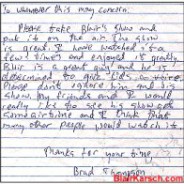 To whomever this may concern:
Please take Blair's show and
put it on the air. The show
is great. I have watched it a
few times and enjoyed it greatly.
Blair is a great guy and he is
determined to give kids a voice.
Please don't ignore him and his
show. My friends and I would
really like to see his show get
some airtime and I think that
many other people would watch it.
Thanks for your time,
Brad Thompson
BlairKarsch.com